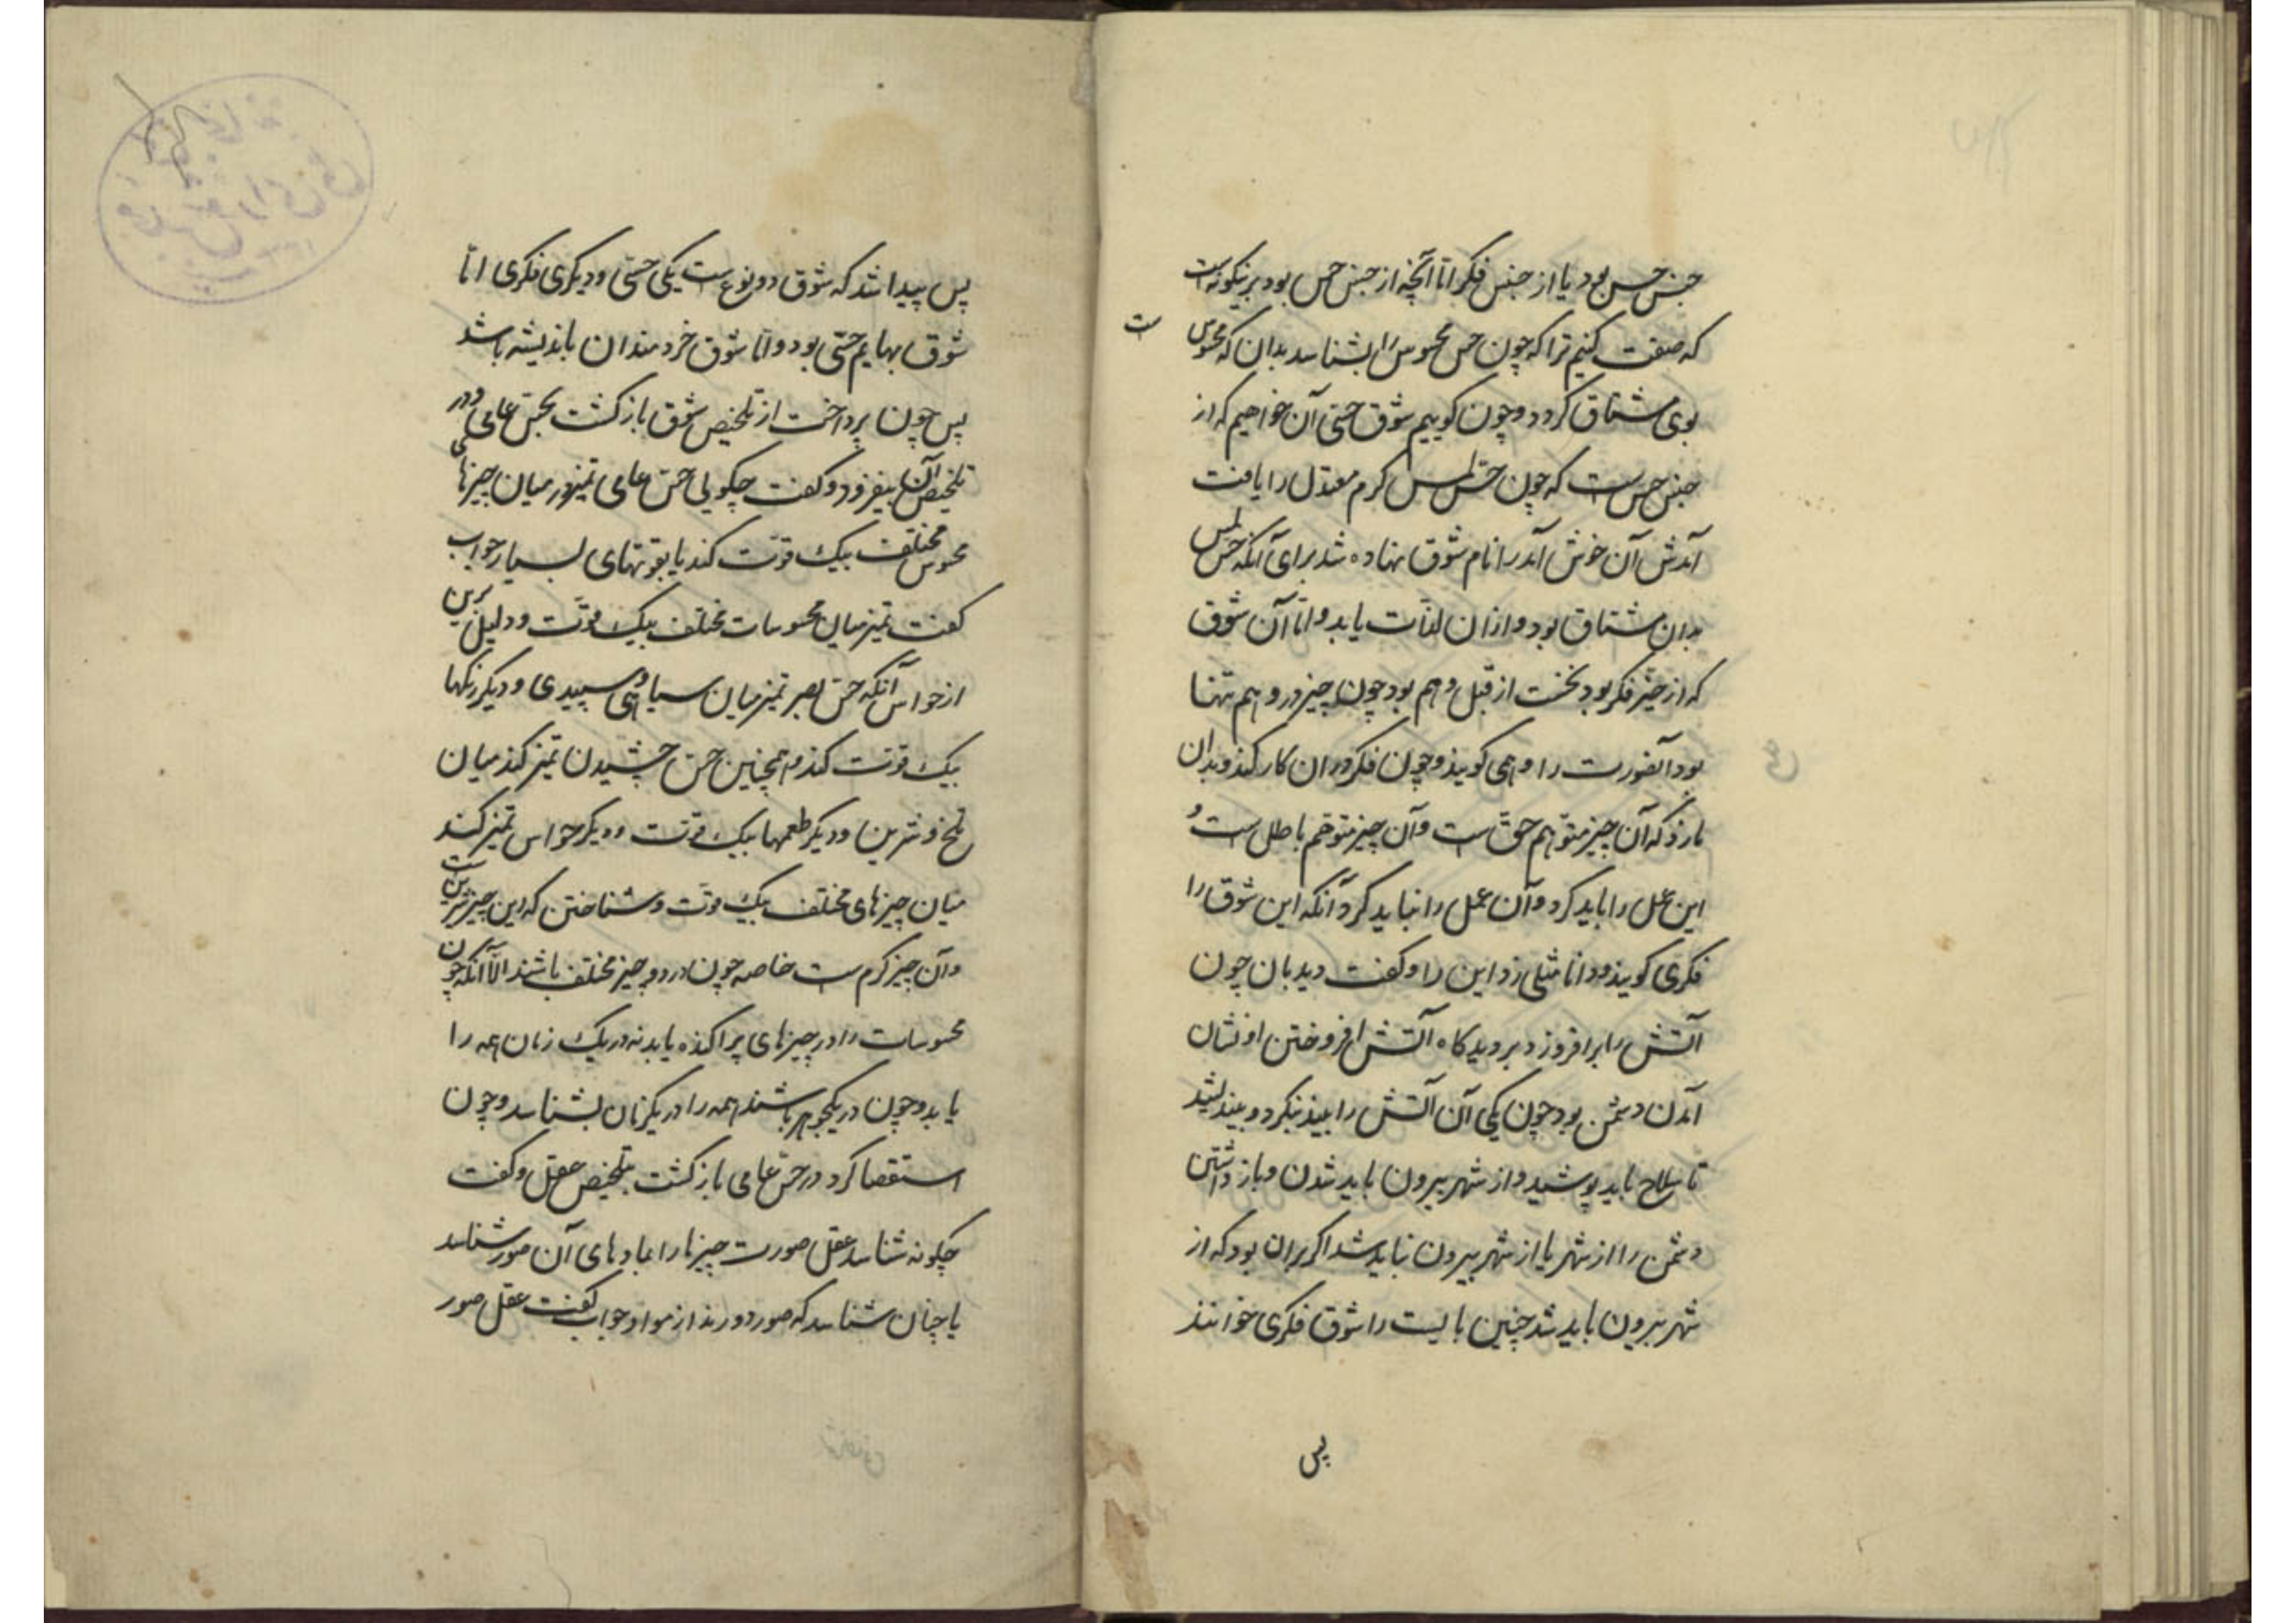 جنس حس بود یا از جنس فکر اما آنچه از جنس حس بود برینکونه است
که صفت کنیم ترا که چون حس محسوس را بشناسد بدان که محسوس
ست
بوی مشتاق کردد و چون کوییم شوق حسی آن خواهیم که از
جنس حس است که چون حس لمس کرم معتدل را یافت
آمدش آن خوش آمد را نام شوق نهاده شد برای آنکه حس لمس
بدان مشتاق بود و ازان لذات یابد و اما آن شوق
که از حیز فکر بود نخست از قبل وهم بود چون چیز در وهم تنها
بود آنصورت را وهمی کویند و چون فکر دران کار کند و بدان
باز که آن چیز متوهم حق است و آن چیز متوهم باطل است و
این عمل را باید کرد و آن عمل را نباید کرد آنکه این شوق را
فکری کویند و دانا مثلی زد این را و کفت دیدبان چون
آتش را برافروزد بر دیدکاه آتش افروختن او نشان
آمدن دشمن بود چون یکی آن آتش را بیند بنکرد و بیندیشد
تا سلاح باید پوشید و از شهر بیرون باید شدن و باز داشتن
دشمن را از شهر یا از شهر بیرون نباید شد اکر بران بود که از
شهر بیرون باید شد چنین بایست را شوق فکری خوانند
پس
پس پیدا شد که شوق دو نوع ست یکی حسی و دیکری فکری اما
شوق بهایم حسی بود و اما شوق خردمندان باندیشه باشد
پس چون پرداخت از تلخیص شوق باز کشت بحس عامی و در
تلخیص آن بیفزود و کفت چکویی حس عامی تمیز در میان چیزهای
محسوس مختلف بیک قوت کند یا بقوتهای بسیار جواب
کفت تمیز میان محسوسات مختلف بیک قوت و دلیل برین
از حواس آنکه حس بصر تمیز میان سیاهی و سپیدی و دیکر رنکها
بیک قوت کند و همچنین حس چشیدن تمیز کند میان
تلخ و شرین و دیکر طعمها بیک قوت و دیکر حواس تمیز کند
میان چیزهای مختلف بیک قوت و شناختن که این چیز شرین ست
و آن چیز کرم ست خاصه چون در دو چیز مختلف باشند الا آنکه چون
محسوسات را در چیزهای پراکنده یابد نه در یک زمان همه را
یابد و چون در یکجوهر باشند همه را در یکزمان بشناسد و چون
استقصا کرد در حس عامی باز کشت بتلخیص عقل و کفت
چکونه شناسد عقل صورت چیزها را با مادهای آن صور شناسد
یا چنان شناسد که صور دورند از مواد جواب کفت عقل صور